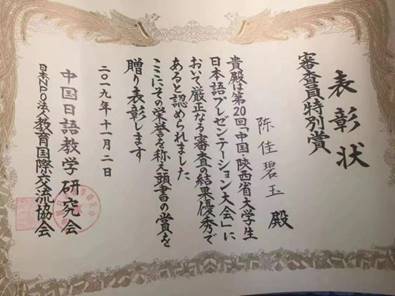 表彰状
審査員特別賞
陈佳碧玉 殿
貴殿は第20回「中国·陕西省大学生
日本語プレゼンテーション大会」に
おいて厳正なる審査の結果優秀で
あると認められました
ここにその栄誉を称え頭書の賞を
贈り表彰します
二〇一九年十一月二日
中国日語教学研究会
日本NPO法人教育国際交流協会